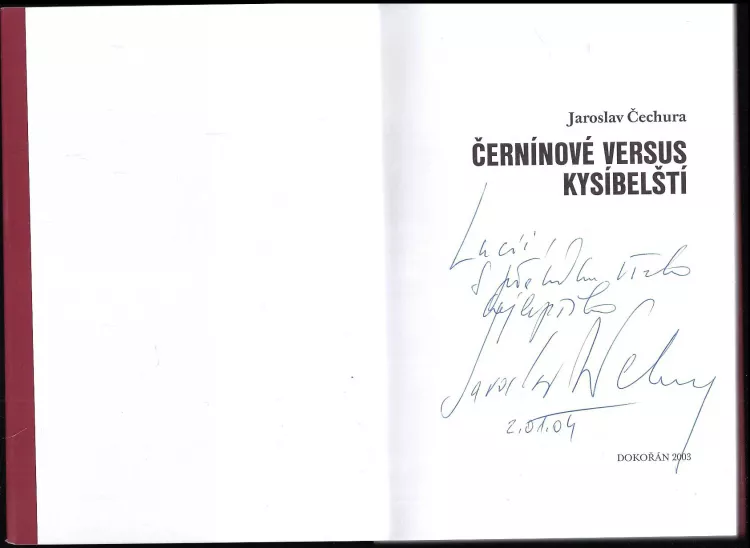 Jaroslav Čechura
ČERNÍNOVÉ VERSUS
KYSÍBELŠTÍ
Lucii,
s
nejlepšího
Jaroslav Čechura
2.01.04
DOKOŘÁN 2003